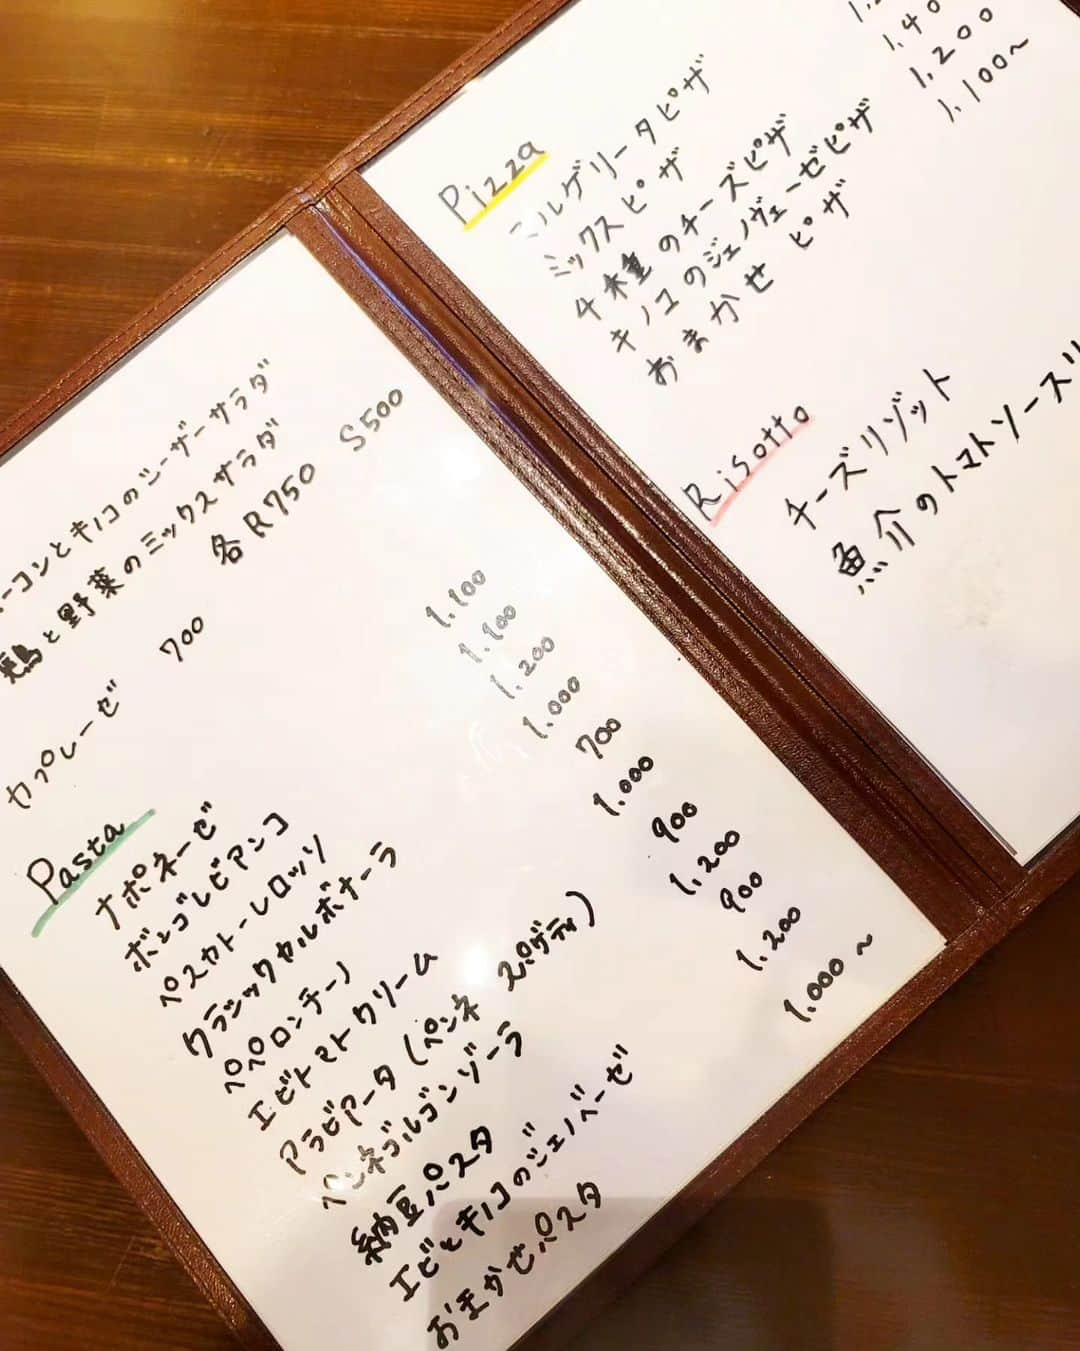 ーコンとキノコのシーザーサラダ
鶏と野菜のミックスサラダ
各 R750 S500
カプレーゼ 700
Pasta
ナポネーゼ 1.100
ボンゴレビアンコ 1.100
ペスカトーレロッソ 1.200
クラシックカルボナーラ 1.000
ペペロンチーノ 700
エビトマトクリーム 1.000
アラビアータ(ペンネ スパゲティ) 900
ペンネゴルゴンゾーラ 1.200
納豆パスタ 900
エビとキノコのジェノベーゼ 1.200
おまかせパスタ 1.000〜
Pizza
マルゲリータピザ
ミックスピザ
4種のチーズピザ 1.40
キノコのジェノヴェーゼピザ 1.200
おまかせ ピザ 1.100〜
Risotto
チーズリゾット
魚介のトマトソース